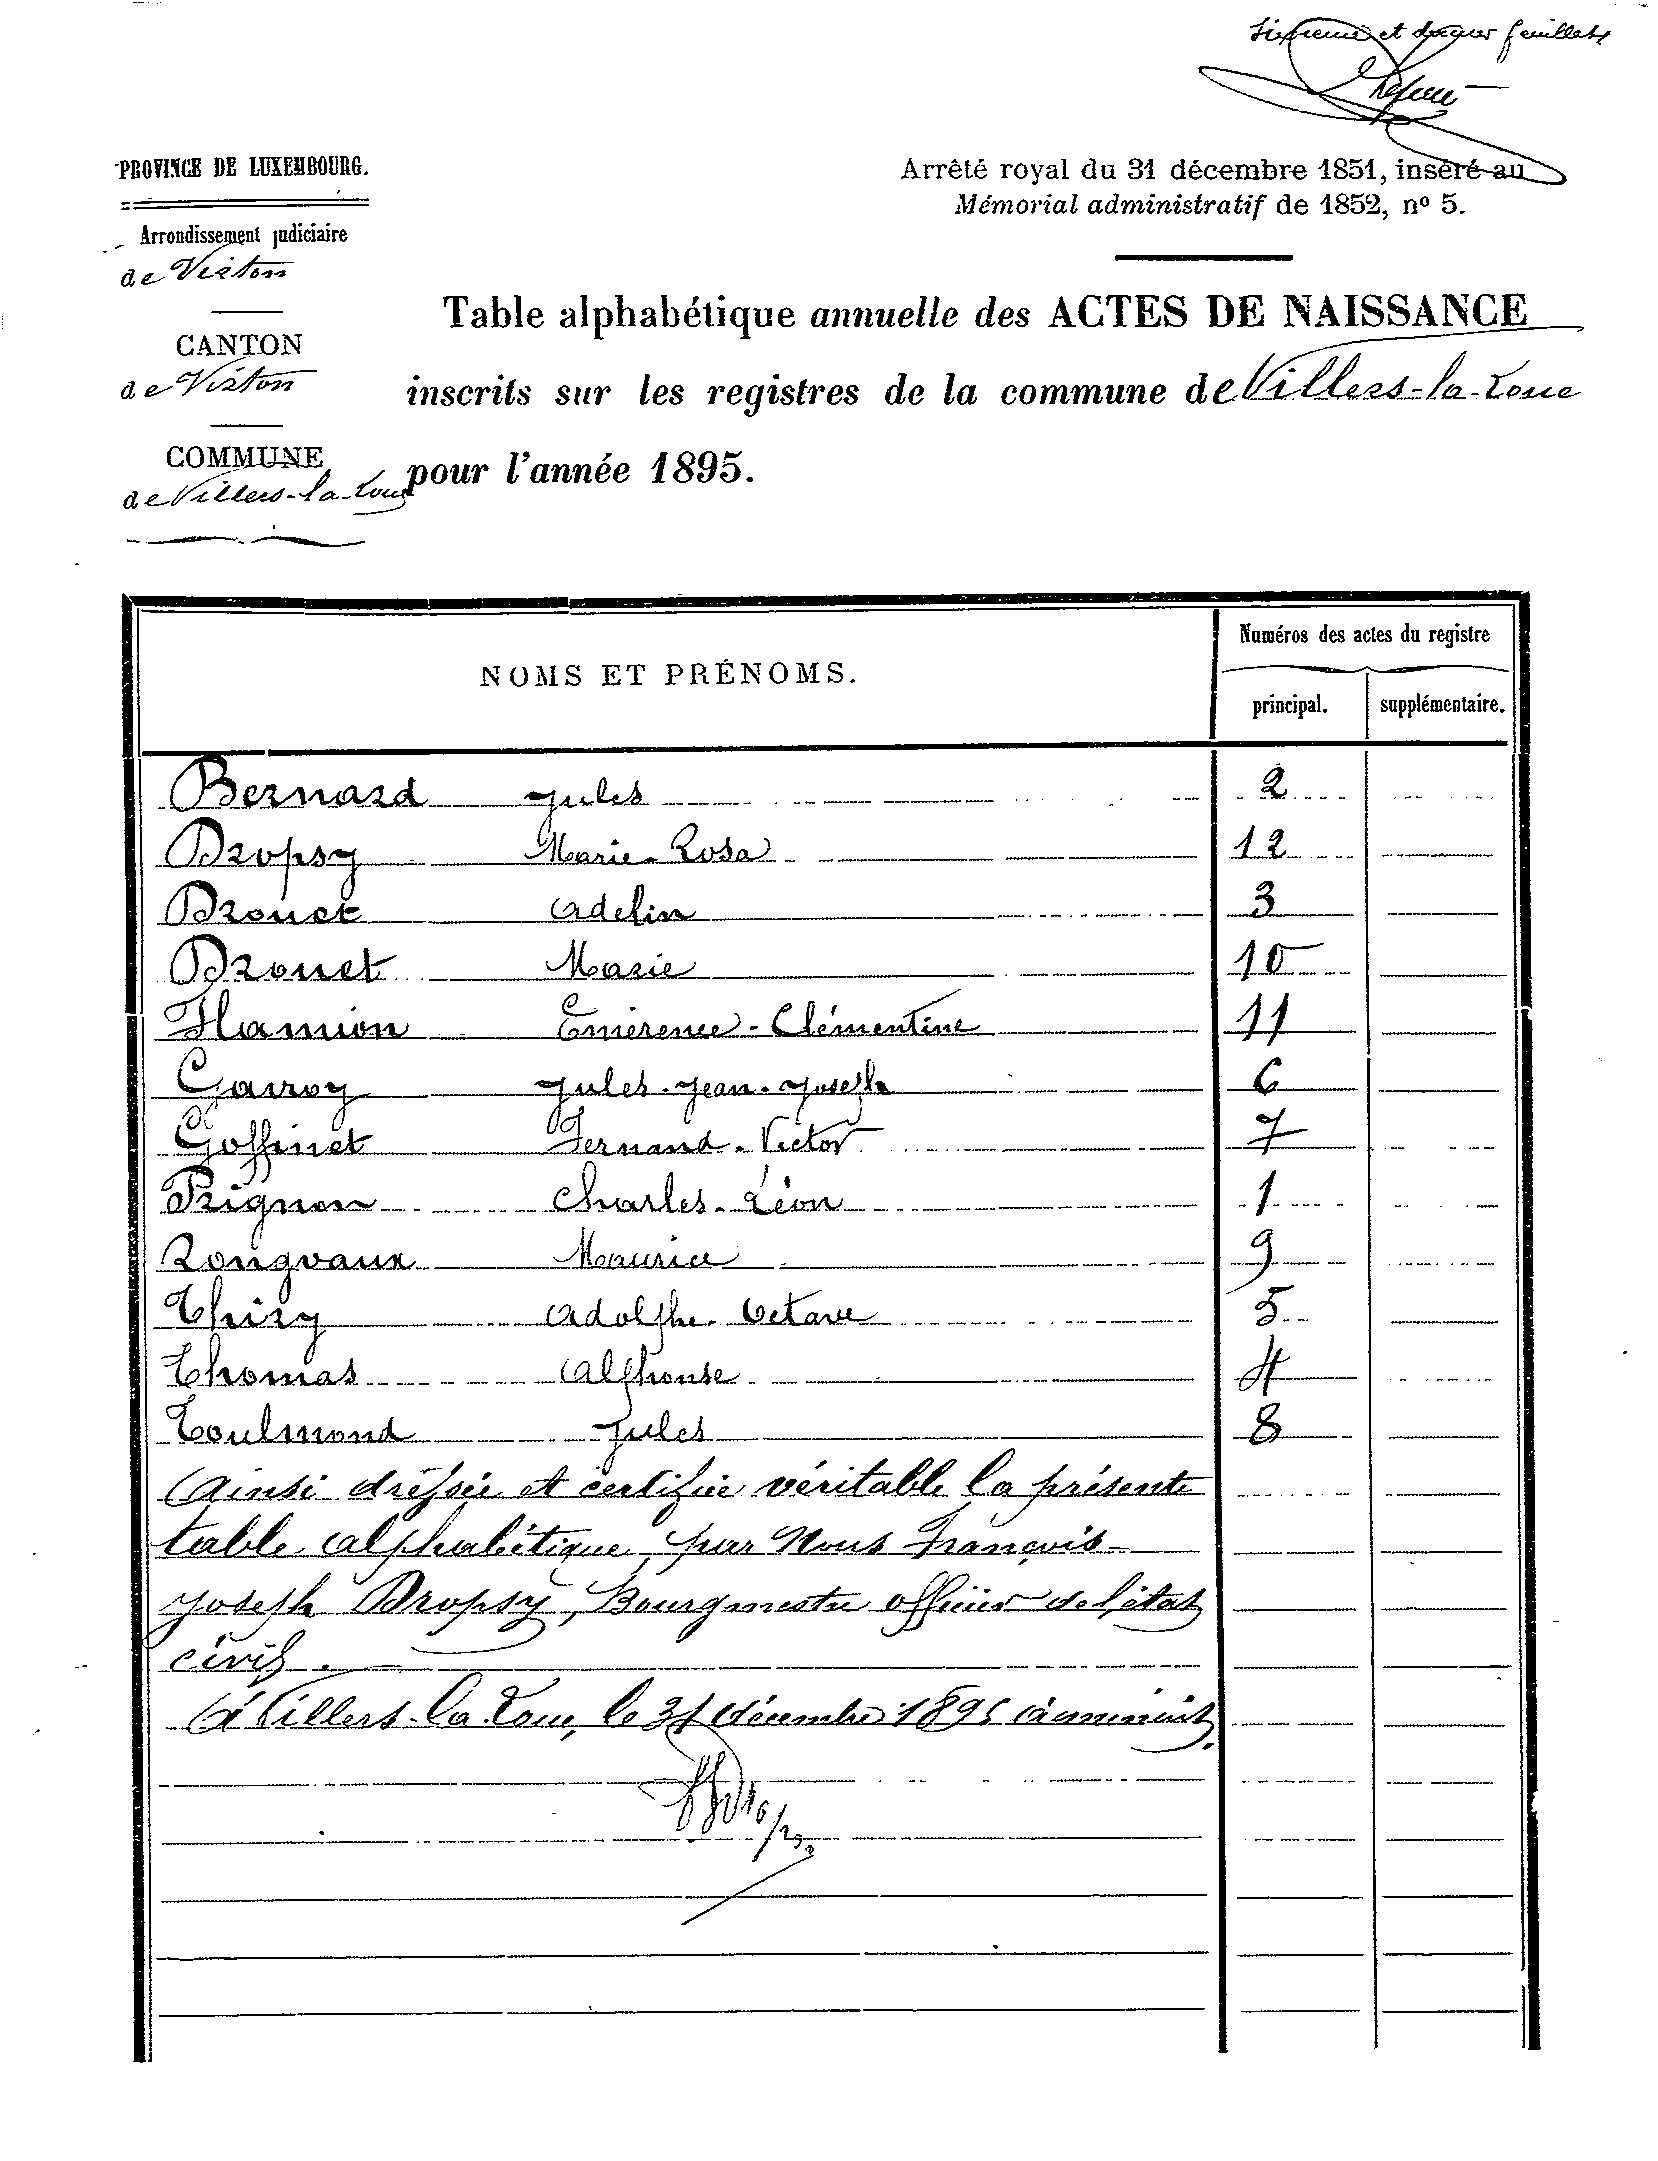 Sixième et dernier feuillet
PROVINCE DE LUXEMBOURG.
Arrondissement judiciaire
de Virton
CANTON
de Virton
COMMUNE
de Villers-la-Loue
Arrêté royal du 31 décembre 1851, inséré au
Mémorial administratif de 1852, nº 5.
Table alphabétique annuelle des ACTES DE NAISSANCE
inscrits sur les registres de la commune de Villers-la-Loue
pour l'année 1895.
NOMS ET PRÉNOMS.
Numéros des actes du registre
principal. supplémentaire.
Bernard Jules 2
Dropsy Marie-Rosa 12
Drouet Adelin 3
Drouet Marie 10
Hamion Emérence-Clémentine 11
Gavroy Jules-Jean-Joseph 6
Goffinet Fernand-Victor 7
Prignon Charles-Léon 1
Rongvaux Maurice 9
Thiry Adolphe-Octave 5
Thomas Alphonse 4
Toulmond Jules 8
Ainsi dressée et certifiée véritable la présente
table alphabétique, par Nous François-
Joseph Dropsy, Bourgmestre officier de l'état
civil.
A Villers-la-Loue, le 31 décembre 1895 à minuit.